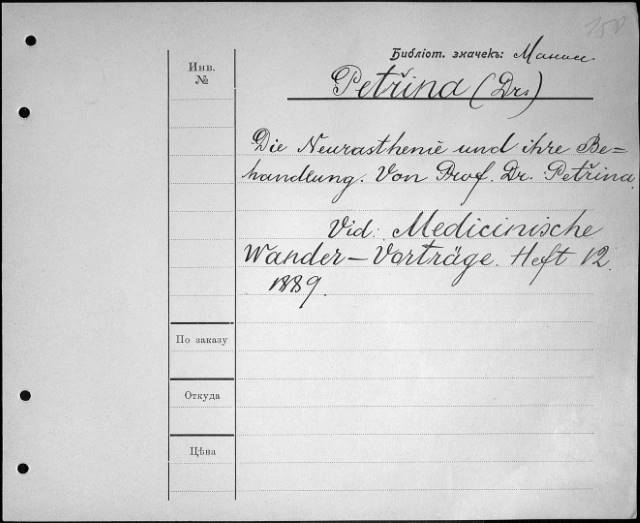 150
Библіот. значекъ:
Инв.
№
Petřina (Dr.)
Die Neurasthenie und ihre Be=
handlung. Von Prof. Dr. Petřina.
Vid: Medicinische
Wander-Vorträge. Heft 12.
1889.
По заказу
Откуда
Цѣна